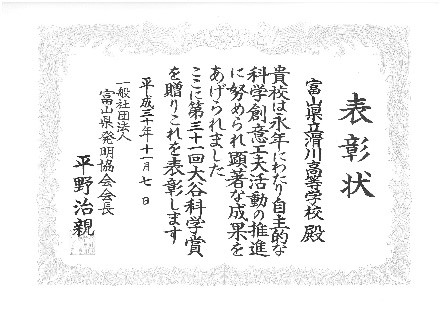 表彰状
富山県立滑川高等学校 殿
貴校は永年にわたり自主的な
科学創意工夫活動の推進
に努められ顕著な成果を
あげられました
ここに第三十一回大谷科学賞
を贈りこれを表彰します
平成三十年十一月七日
一般社団法人
富山県発明協会会長
平野治親